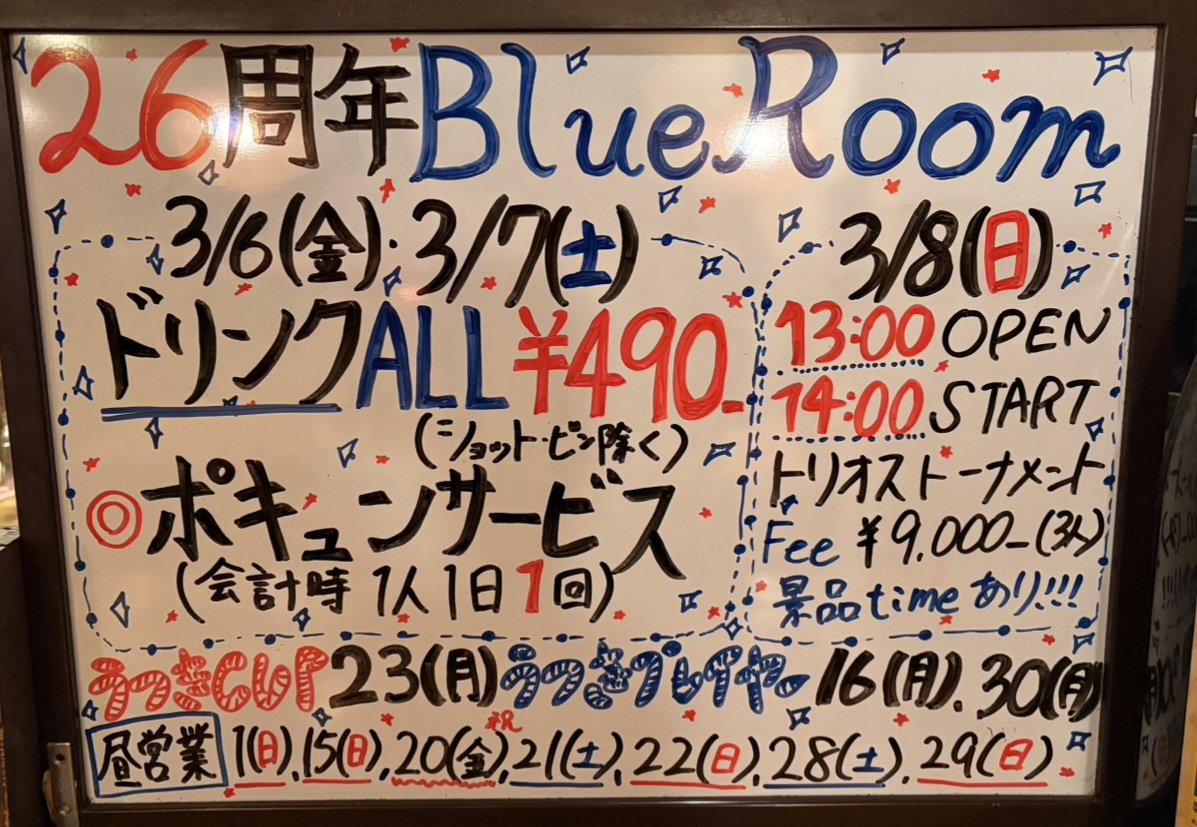 26周年 Blue Room
3/6(金)・3/7(土)
ドリンクALL ¥490-
(ショット・ビン除く)
◎ポキュンサービス
(会計時 1人1日1回)
3/8(日)
13:00 OPEN
14:00 START
トリオストーナメント
Fee ¥9,000-(3人)
景品timeあり!!!
うつぎCUP 23(月) うつぎプレイヤー 16(月). 30(月)
祝
昼営業 1(日), 15(日), 20(金), 21(土), 22(日), 28(土), 29(日)